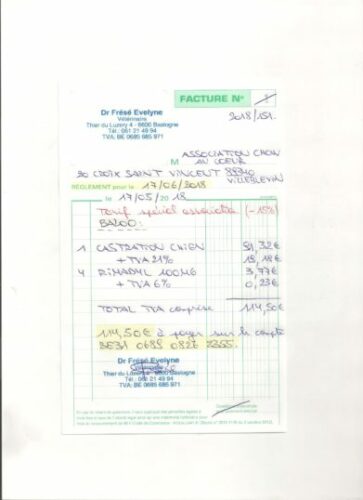 FACTURE N°
2018/151.
Dr Frésé Evelyne
Vétérinaire
Thier du Luzery 4 - 6600 Bastogne
Tél.: 061 21 49 94
TVA: BE 0685 685 971
M ASSOCIATION CHOW
AU COEUR
30 CROIX SAINT VINCENT 88340
REGLEMENT pour le : 17/06/2018
le 17/05/2018
Tarif spécial association (-15%)
BALOO:
1 CASTRATION CHIEN 91,32€
+ TVA 21% 19,18€
4 RIMADYL 100MG 3,77€
+ TVA 6% 0,23€
TOTAL TVA comprise 114,50€
114,50€ à payer sur le compte
BE31 0689 0827 2355.
Dr Frésé Evelyne
Thier du Luzery 4 - 6600 Bastogne
Tél.: 061 21 49 94
TVA: BE 0685 685 971